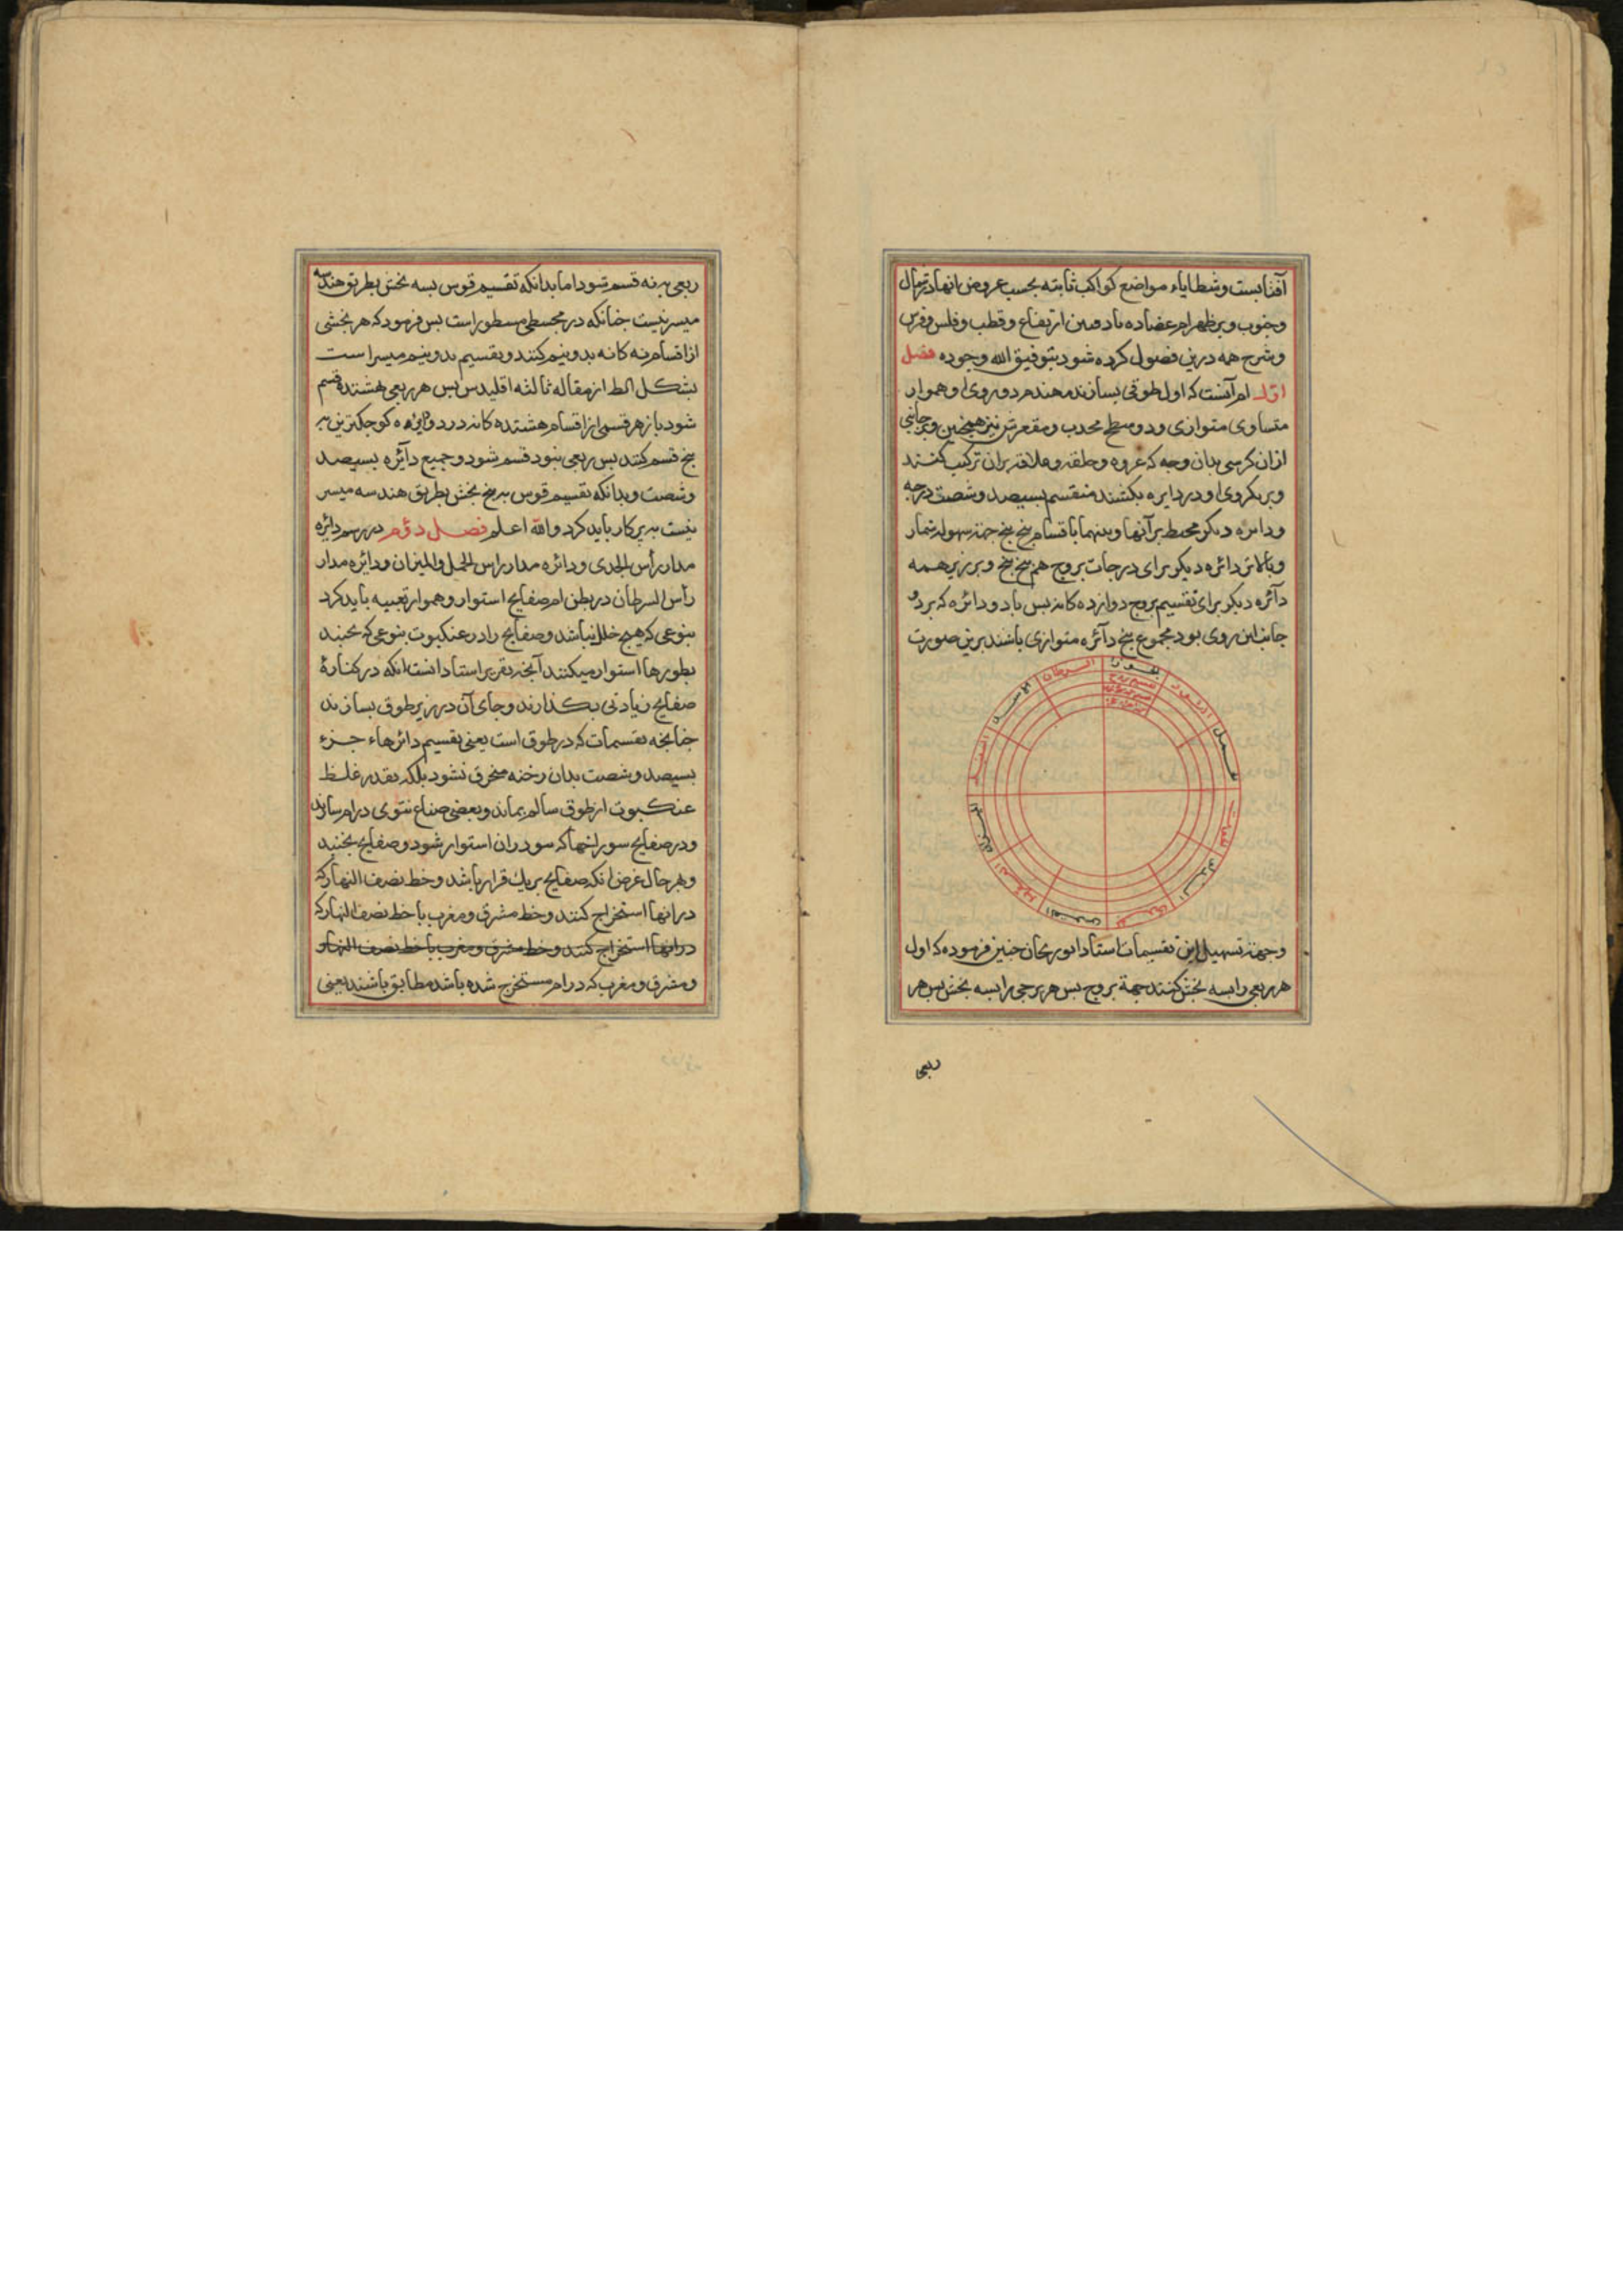 آفتابست وشطایاء مواضع کواکب ثابته بحسب عروض انها در شمال
وجنوب وبر ظهر ام عضاده با دفتین ارتفاع وقطب وفلس وفرس
وشرح همه درین فصول کرده شود بتوفیق الله وجوده فصل
اول ام آنست که اول طوقی بسازند مهندم دو روی او هموار
متساوی متوازی ودو سطح محدب ومقعرش نیز همچنین وبر جانبی
ازان کرسی بدان وجه که عروه وحلقه وعلاقه بران ترکیب کنند
وبر یکروی او در دایره بکشند منقسم بسیصد وشصت درجه
ودائره دیکر محیط بر آنها وبینهما باقسام پنج پنج جهة سهولة شمار
وبالاتر دائره دیکر برای درجات بروج هم پنج پنج وبر زبر همه
دآئره دیکر برای تقسیم بروج دوازده کانه بس باد ودائره که بر دو
جانب این روی بود مجموع پنج دآئره متوازی باشند برین صورت
السرطان
الجوزا
الثور
الحمل
الحوت
الدلو
الجدی
القوس
العقرب
المیزان
السنبله
الاسد
وجهة تسهیل این تقسیمات استاد ابوریحان جنین فرموده که اول
هر ربعی را بسه بخش کنند جهة بروج بس هر برجی را بسه بخش بس هر
ربعی
ربعی بر نه قسم شود اما بدانکه تقسیم قوس بسه بخش بطریق هندسه
میسر نیست جنانکه در مجسطی مسطور است بس فرمود که هر بخشی
از اقسام نه کانه بدو نیم کنند وتقسیم بدو نیم میسر است
بشکل الط از مقاله ثالثه اقلیدس بس هر ربعی بهشتده قسم
شود باز هر قسمی از اقسام هشتده کانه در دو دائره کوجکترین بر
پنج قسم کنند بس ربعی بنود قسم شود وجمیع دآئره بسیصد
وشصت وبدانکه تقسیم قوس به پنج بخش بطریق هندسه میسر
نیست به پرکار باید کرد والله اعلم فصل دوم در رسم دائره
مدار رأس الجدی ودائره مدار راس الحمل والمیزان ودائره مدار
رأس السرطان در بطن ام صفایح استوار وهموار تعبیه باید کرد
بنوعی که هیچ خلل نباشد وصفایح را در عنکبوت بنوعی که نجنبد
بطورها استوار میکنند آنجه تقریر استادانست انکه در کنارهٔ
صفایح زیادتی بکذارند وجای آن در زیر طوق بسازند
جنانجه تقسیمات که در طوق است یعنی تقسیم دائرهاء جزء
بسیصد وشصت بدان رخنه منخرق نشود بلکه بقدر غلظ
عنکبوت از طوق سالم بماند وبعضی صناع نتوی در ام سازند
ودر صفایح سوراخها که سود ران استوار شود وصفایح نجنبد
وبهر حال غرض انکه صفایح بر یك قرار باشد وخط نصف النهار که
درانها استخراج کنند وخط مشرق ومغرب با خط نصف النهار که
درانها استخراج کنند وخط مشرق ومغرب با خط نصف النهار
ومشرق ومغرب که در ام مستخرج شده باشد مطابق باشند یعنی